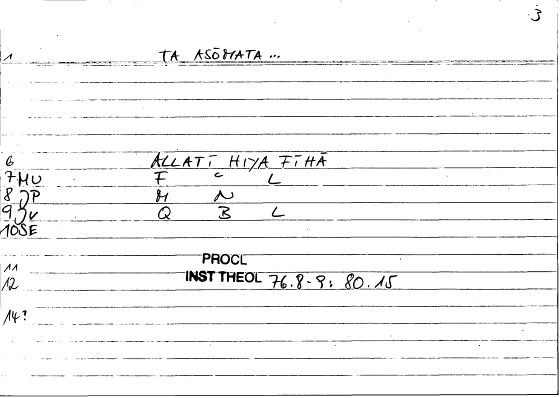 3
1 TA ASŌMATA ...
6 ALLATĪ HIYA FĪHĀ
7 MU F ʿ L
8 JP M N
9 JV Q B L
10 SE
11 PROCL
12 INST THEOL 76.8-9; 80.15
14?